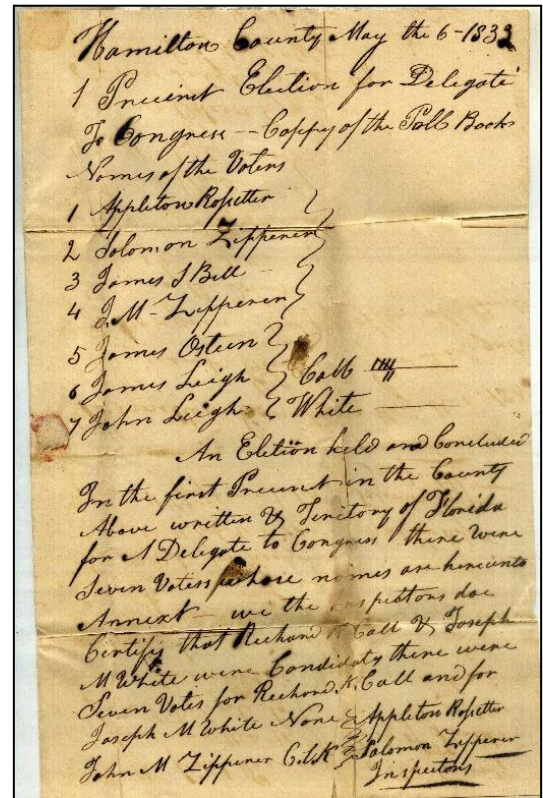 Hamilton County May the 6-1833
1 Precinct Election for Delegate
To Congress - Coppy of the Poll Book
Names of the Voters
1 Appleton Rossetter
2 Solomon Zipperer
3 James S Bell
4 J. M - Zipperer
5 James Osteen
6 James Leigh Call
7 John Leigh White
An Eletion held and Concluded
In the first Precinct in the County
Above written & Teritory of Florida
for A Delegate to Congress there were
Seven Voters whose names are hereunto
Annext - we the Inspectors doe
Certify that Rechard K Call & Joseph
M White were Candidats there were
Seven Votes for Rechard K. Call and for
Joseph M White None Appleton Rossetter
John M Zipperer C.l.K Solomon Zipperer
Inspectors